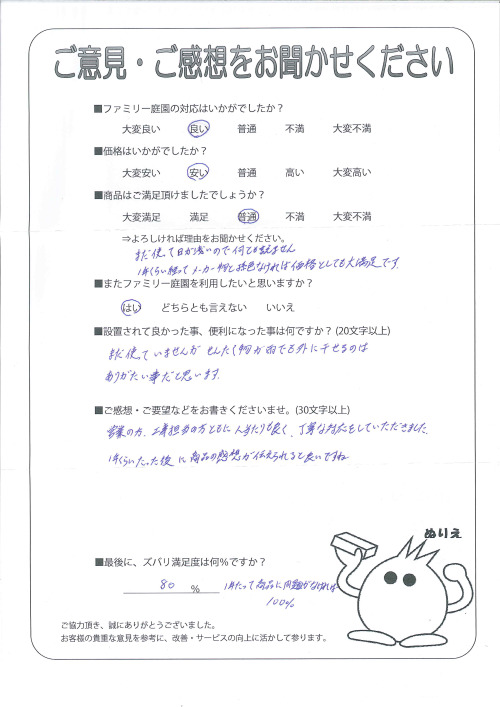 ご意見・ご感想をお聞かせください
■ファミリー庭園の対応はいかがでしたか？
大変良い 良い 普通 不満 大変不満
■価格はいかがでしたか？
大変安い 安い 普通 高い 大変高い
■商品はご満足頂けましたでしょうか？
大変満足 満足 普通 不満 大変不満
⇒よろしければ理由をお聞かせください。
まだ使って日が浅いので何とも言えません
1年くらい経ってメーカー物と遜色なければ価格としても大満足です。
■またファミリー庭園を利用したいと思いますか？
はい どちらとも言えない いいえ
■設置されて良かった事、便利になった事は何ですか？(20文字以上)
まだ使っていませんが せんたく物が雨でも外に干せるのは
ありがたい事だと思います。
■ご感想・ご要望などをお書きくださいませ。(30文字以上)
営業の方、工事担当の方ともに人当たりも良く、丁寧な対応をしていただきました。
1年くらいたった後に商品の感想が伝えられると良いですね
ぬりえ
■最後に、ズバリ満足度は何％ですか？
80 ％ 1年たって商品に問題がなければ
100%
ご協力頂き、誠にありがとうございました。
お客様の貴重な意見を参考に、改善・サービスの向上に活かして参ります。